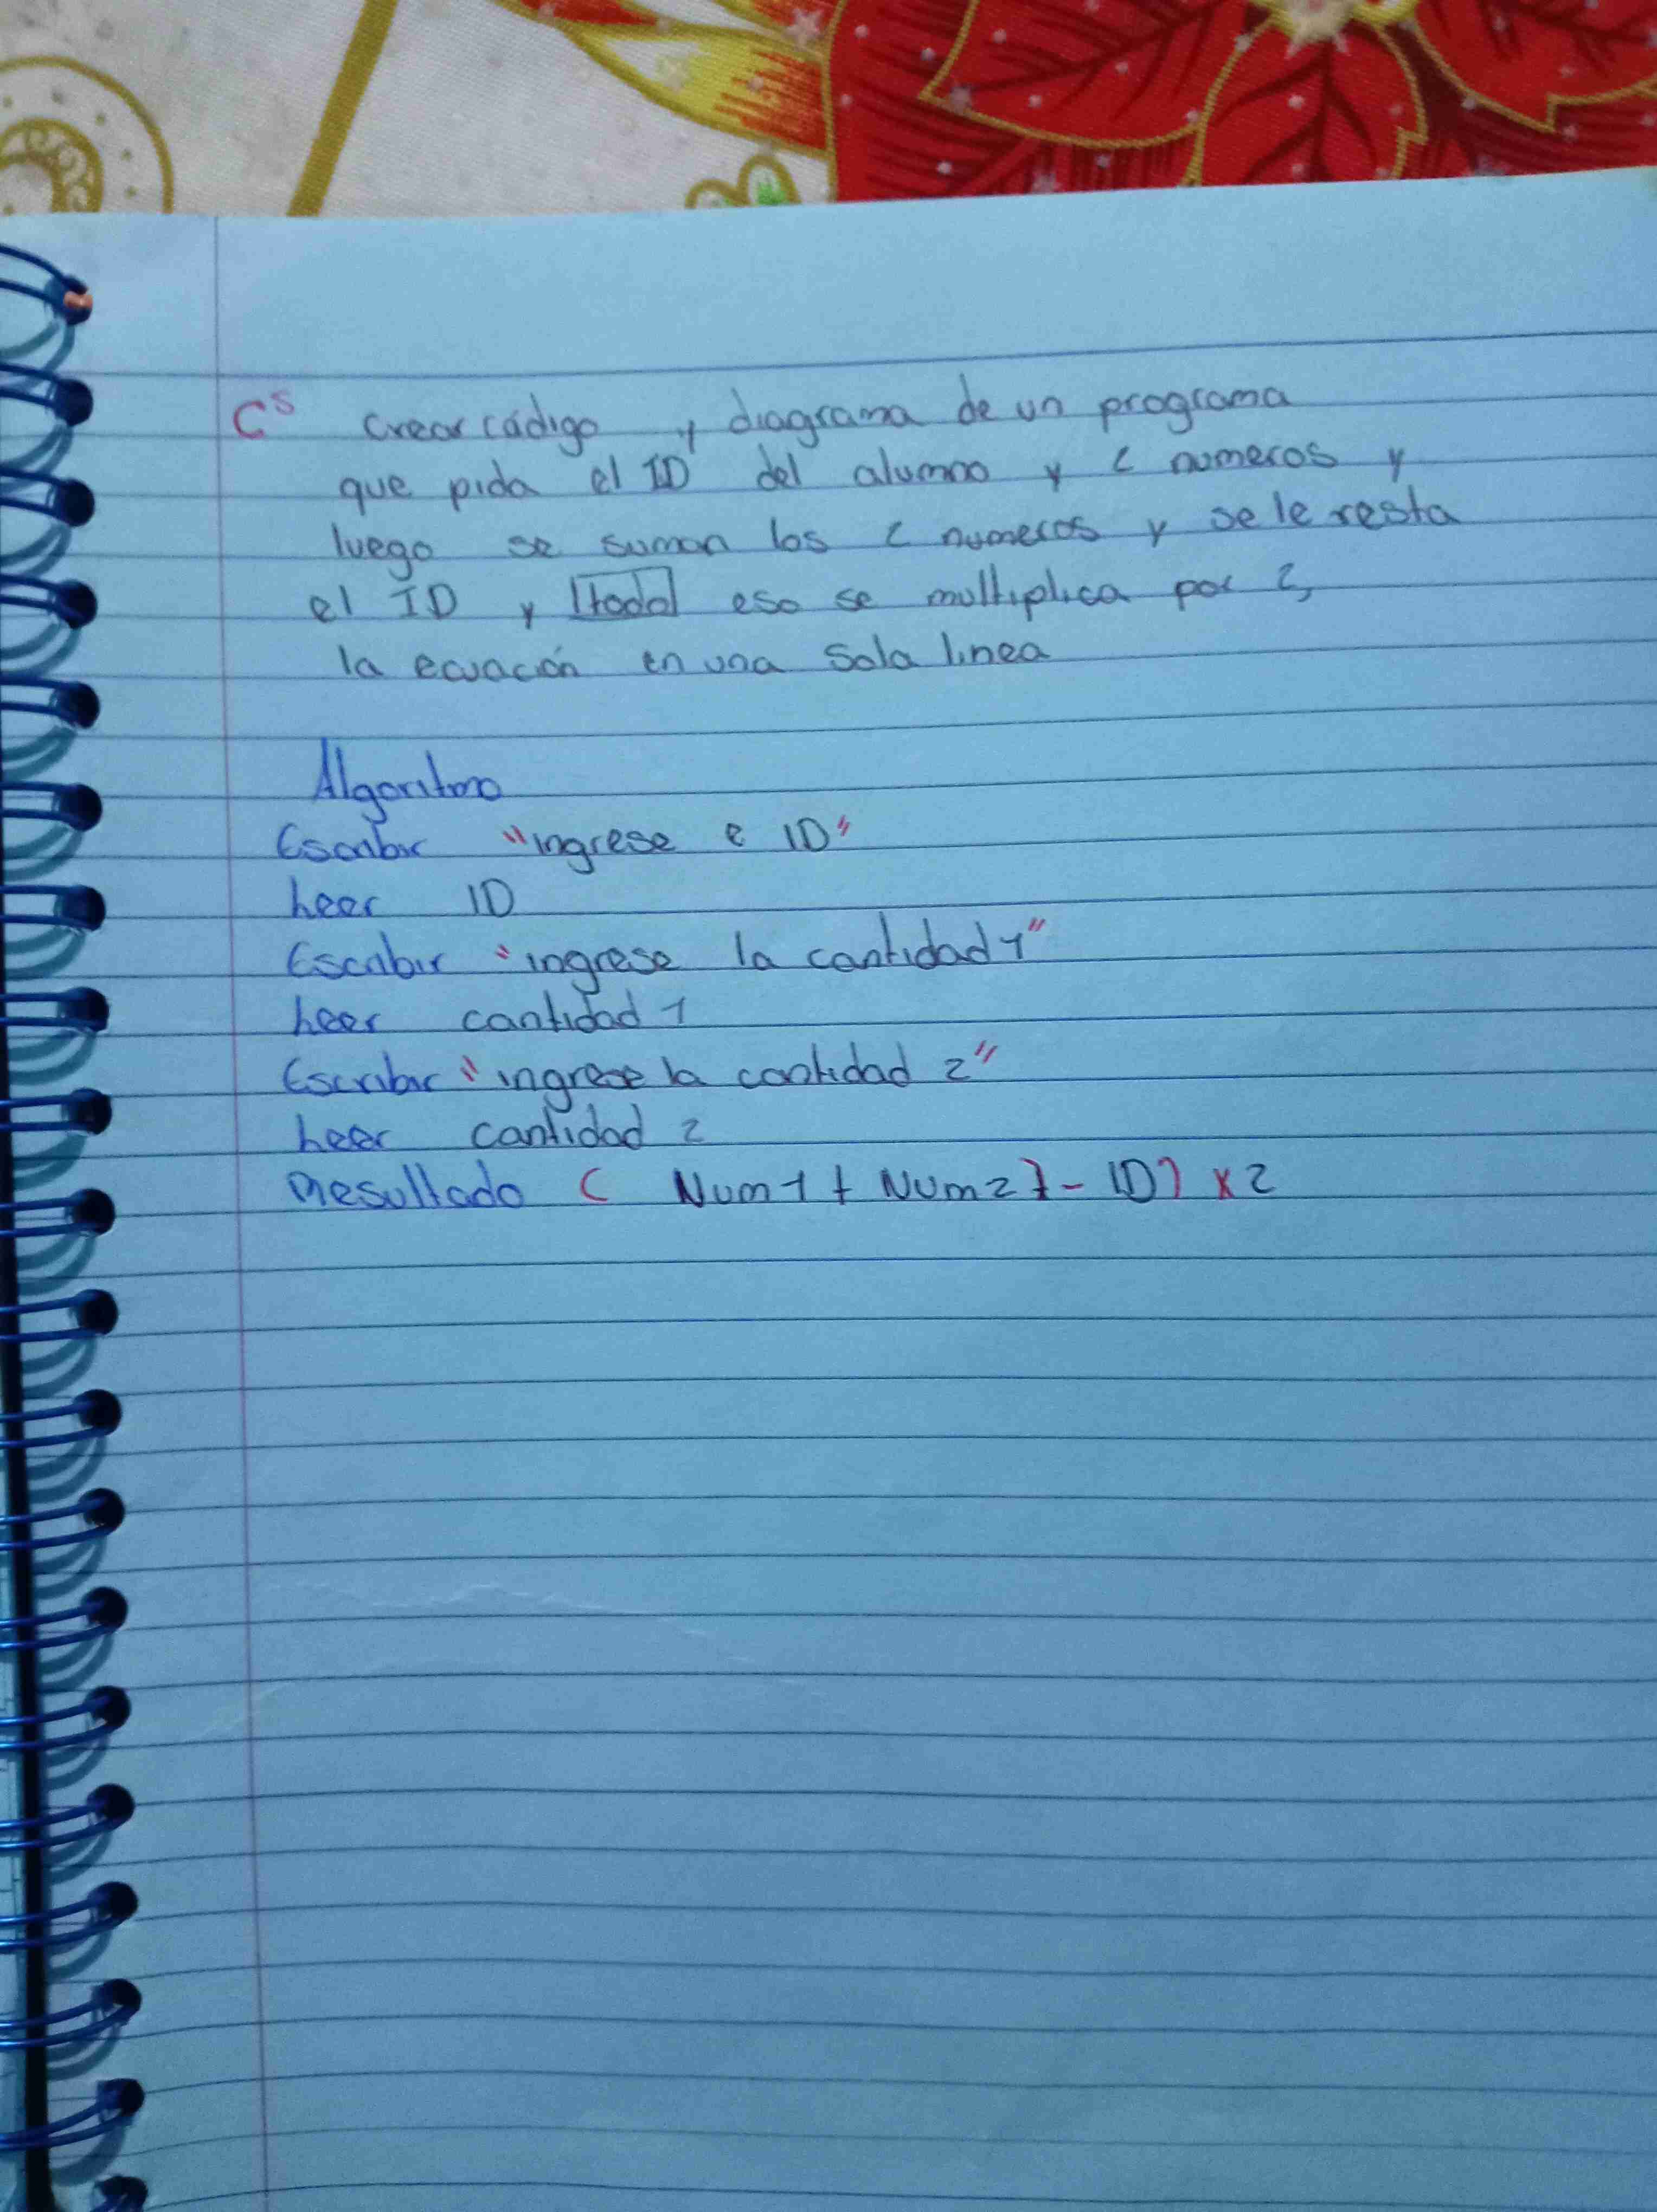 Cs crear código y diagrama de un programa
que pida el ID del alumno y 2 numeros y
luego se suman los 2 numeros y se le resta
el ID y todo eso se multiplica por 2,
la ecuación en una sola linea
Algoritmo
Escribir "ingrese e ID"
Leer ID
Escribir "ingrese la cantidad 1"
Leer cantidad 1
Escribir "ingrese la cantidad 2"
Leer cantidad 2
Resultado ( Num1 + Num2) - ID) x 2